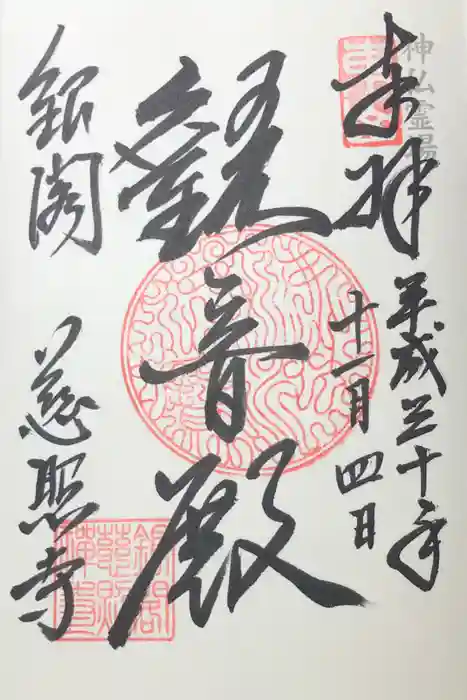 神仏霊場
奉拝
平成三十年
十一月四日
観音殿
銀閣
慈照寺